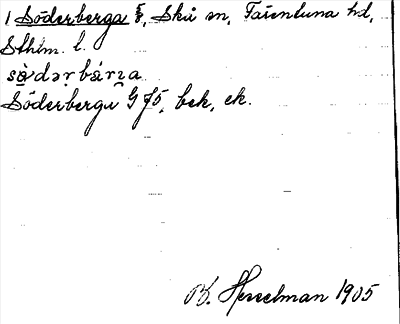 1 Söderberga §, Skå sn, Färentuna hd,
Sthlm. l.
sø̀dərbárɪa
Söderberga G J5, bek, ek.
B. Hesselman 1905